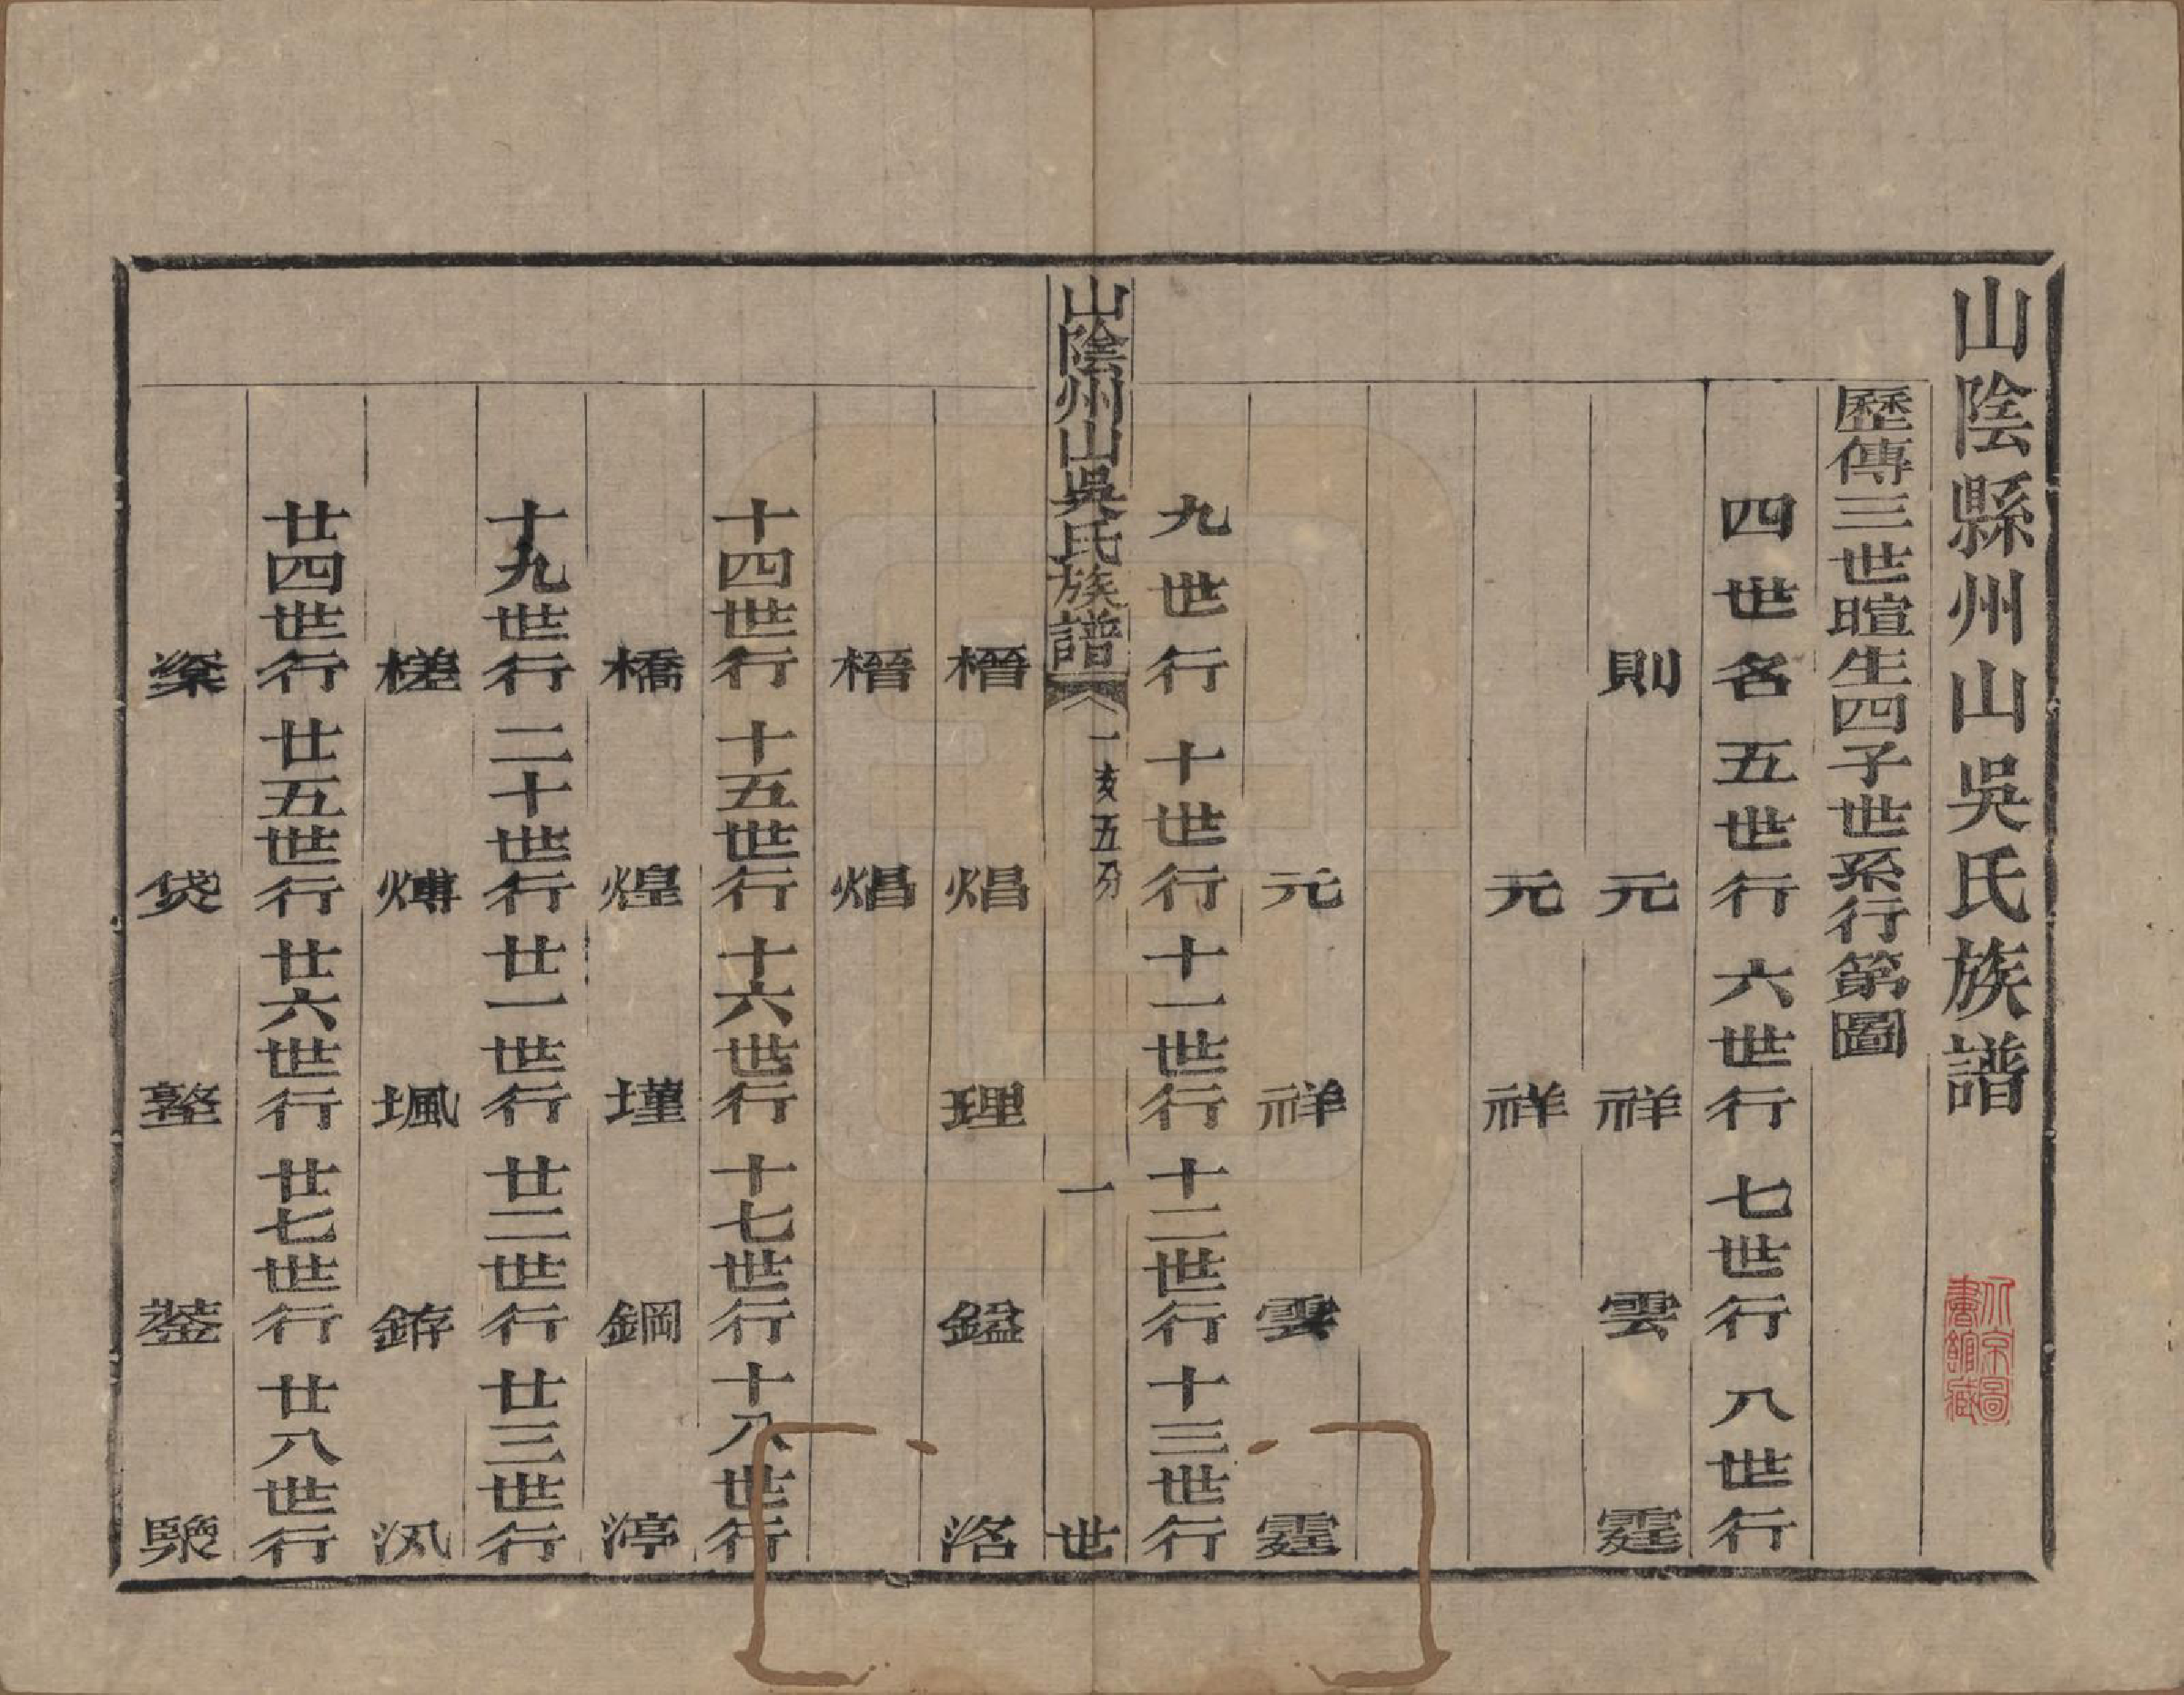 山陰縣州山吳氏族譜
歷傳三世暄生四子世系行第圖
四世名 五世行 六世行 七世行 八世行
則 元 祥 雲 霆
元 祥
元 祥 雲 霆
九世行 十世行 十一世行 十二世行 十三世行
山陰州山吳氏族譜 一亥五分 一 世
榗 焻 理 鎰 洛
榗 焻
十四世行 十五世行 十六世行 十七世行 十八世行
橋 煌 墐 鋼 渟
十九世行 二十世行 廿一世行 廿二世行 廿三世行
槎 煿 堸 銌 沨
廿四世行 廿五世行 廿六世行 廿七世行 廿八世行